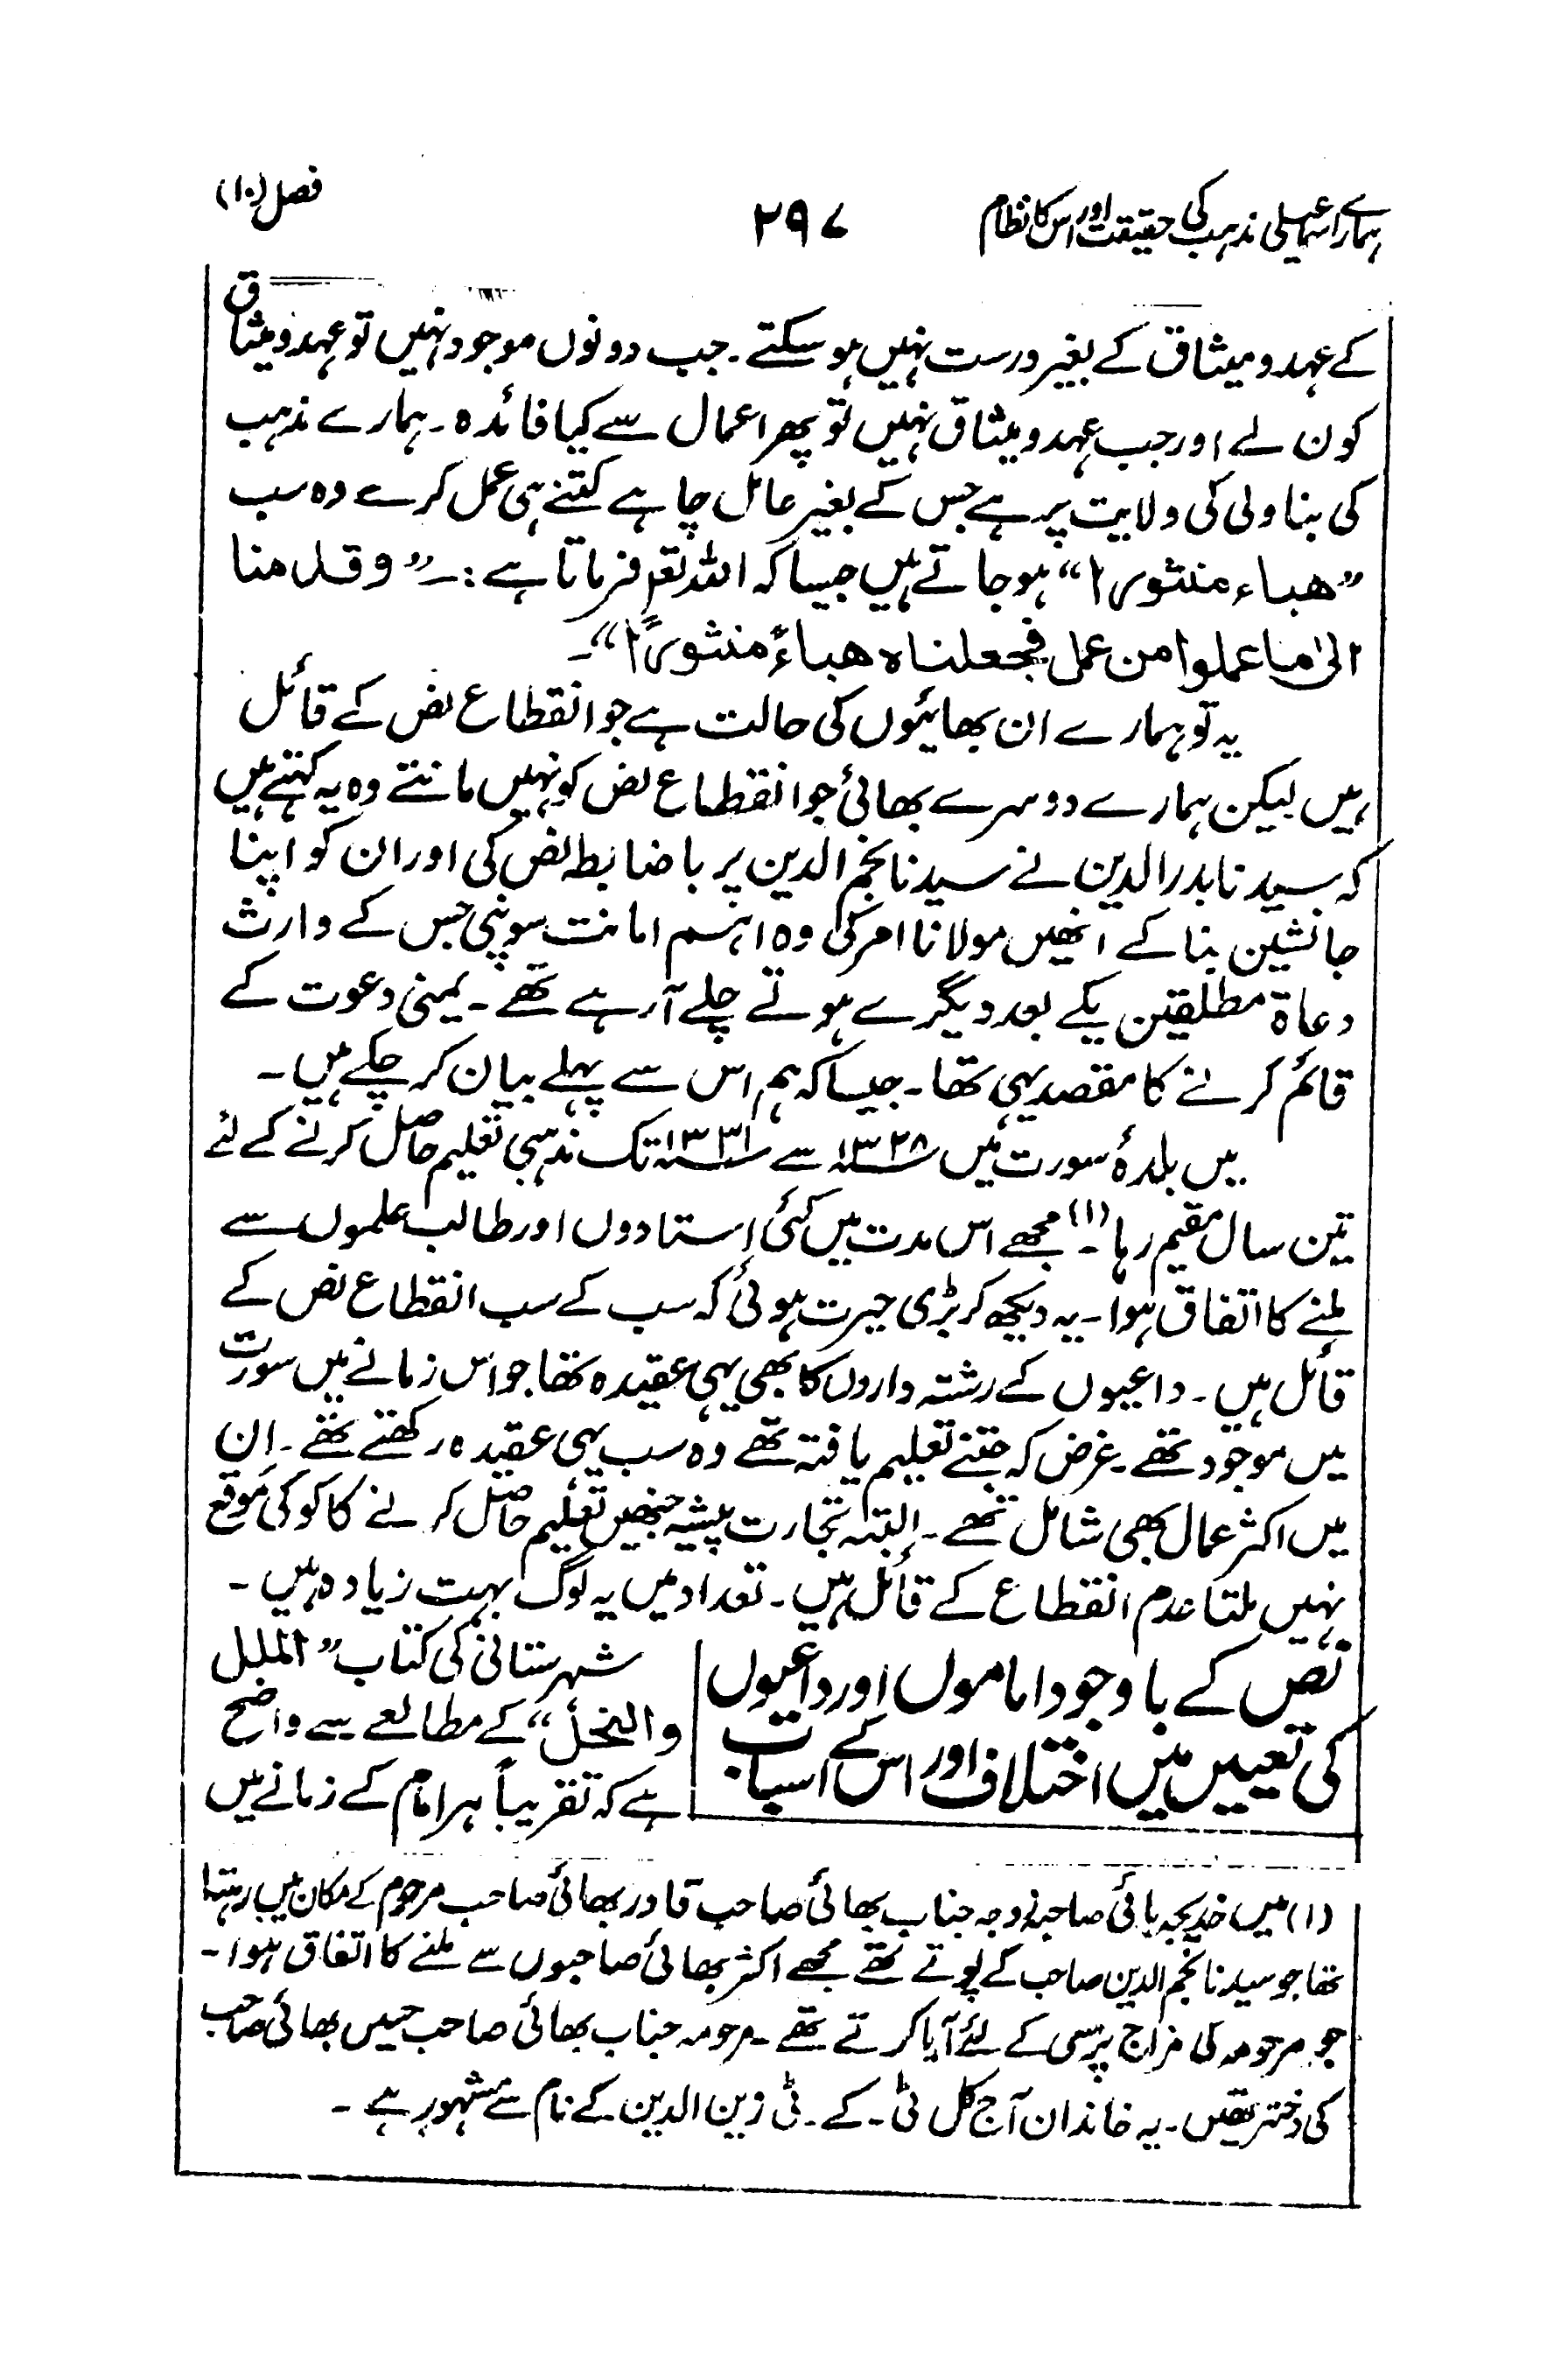 ہمارے اسماعیلی مذہب کی حقیقت اور اس کا نظام ۲۹۷ فصل (۱۰)
کے عہد و میثاق کے بغیر درست نہیں ہو سکتے۔ جب دونوں موجود نہیں تو عہد و میثاق
کون لے اور جب عہد و میثاق نہیں تو پھر اعمال سے کیا فائدہ۔ ہمارے مذہب
کی بنا ولی کی ولایت پر ہے جس کے بغیر عامل چاہے کتنے ہی عمل کرے وہ سب
”ھباء منثورا“ ہو جاتے ہیں جیسا کہ اللہ تعم فرماتا ہے :۔ ”وقدمنا
الیٰ ما عملوا من عمل فجعلناہ ھباءً منثوراً“۔
یہ تو ہمارے ان بھائیوں کی حالت ہے جو انقطاع نص کے قائل
ہیں لیکن ہمارے دوسرے بھائی جو انقطاع نص کو نہیں مانتے وہ یہ کہتے ہیں
کہ سیدنا بدرالدین نے سیدنا نجم الدین پر باضابطہ نص کی اور ان کو اپنا
جانشین بنا کے انھیں مولانا امر کی وہ اہم امانت سونپی جس کے وارث
دعاۃ مطلقین یکے بعد دیگرے ہوتے چلے آ رہے تھے۔ یمنی دعوت کے
قائم کرنے کا مقصد یہی تھا۔ جیسا کہ ہم اس سے پہلے بیان کر چکے ہیں۔
میں بلدۂ سورت میں ۱۳۲۸ھ سے ۱۳۳۱ھ تک مذہبی تعلیم حاصل کرنے کے لئے
تین سال مقیم رہا۔(۱) مجھے اس مدت میں کئی استادوں اور طالب علموں سے
ملنے کا اتفاق ہوا۔ یہ دیکھ کر بڑی حیرت ہوئی کہ سب کے سب انقطاع نص کے
قائل ہیں۔ داعیوں کے رشتہ داروں کا بھی یہی عقیدہ تھا جو اس زمانے میں سورت
میں موجود تھے۔ غرض کہ جتنے تعلیم یافتہ تھے وہ سب یہی عقیدہ رکھتے تھے۔ اِن
میں اکثر عمال بھی شامل تھے۔ البتہ تجارت پیشہ جنھیں تعلیم حاصل کرنے کا کوئی موقع
نہیں ملتا عدم انقطاع کے قائل ہیں۔ تعداد میں یہ لوگ بہت زیادہ ہیں۔
نص کے باوجود اماموں اور داعیوں
کی تعیین میں اختلاف اور اس کے اسباب
شہرستانی کی کتاب ”الملل
والنحل“ کے مطالعے سے واضح
ہے کہ تقریباً ہر امام کے زمانے میں
(۱) میں خدیجہ بائی صاحبہ زوجہ جناب بھائی صاحب قادر بھائی صاحب مرحوم کے مکان میں رہتا
تھا جو سیدنا نجم الدین صاحب کے پوتے تھے مجھے اکثر بھائی صاحبوں سے ملنے کا اتفاق ہوا۔
جو مرحومہ کی مزاج پرسی کے لئے آیا کرتے تھے۔ مرحومہ جناب بھائی صاحب حسین بھائی صاحب
کی دختر تھیں۔ یہ خاندان آج کل ٹی۔ کے۔ ٹی زین الدین کے نام سے مشہور ہے۔